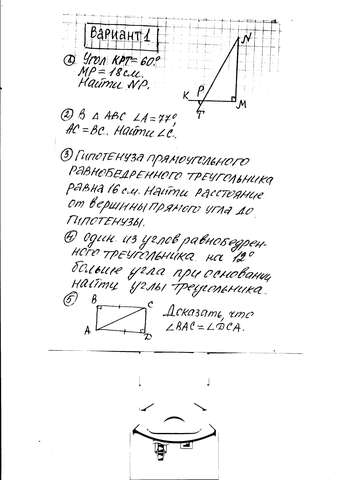 Вариант 1
① Угол КРТ = 60°.
МР = 18 см.
Найти NP.
N
K
P
M
T
② В △ АВС ∠А = 77°,
АС = ВС. Найти ∠С.
③ Гипотенуза прямоугольного
равнобедренного треугольника
равна 16 см. Найти расстояние
от вершины прямого угла до
гипотенузы.
④ Один из углов равнобедрен-
ного треугольника на 12°
больше угла при основании,
найти углы треугольника.
⑤
B
C
A
D
Доказать, что
∠ВАС = ∠DCA.